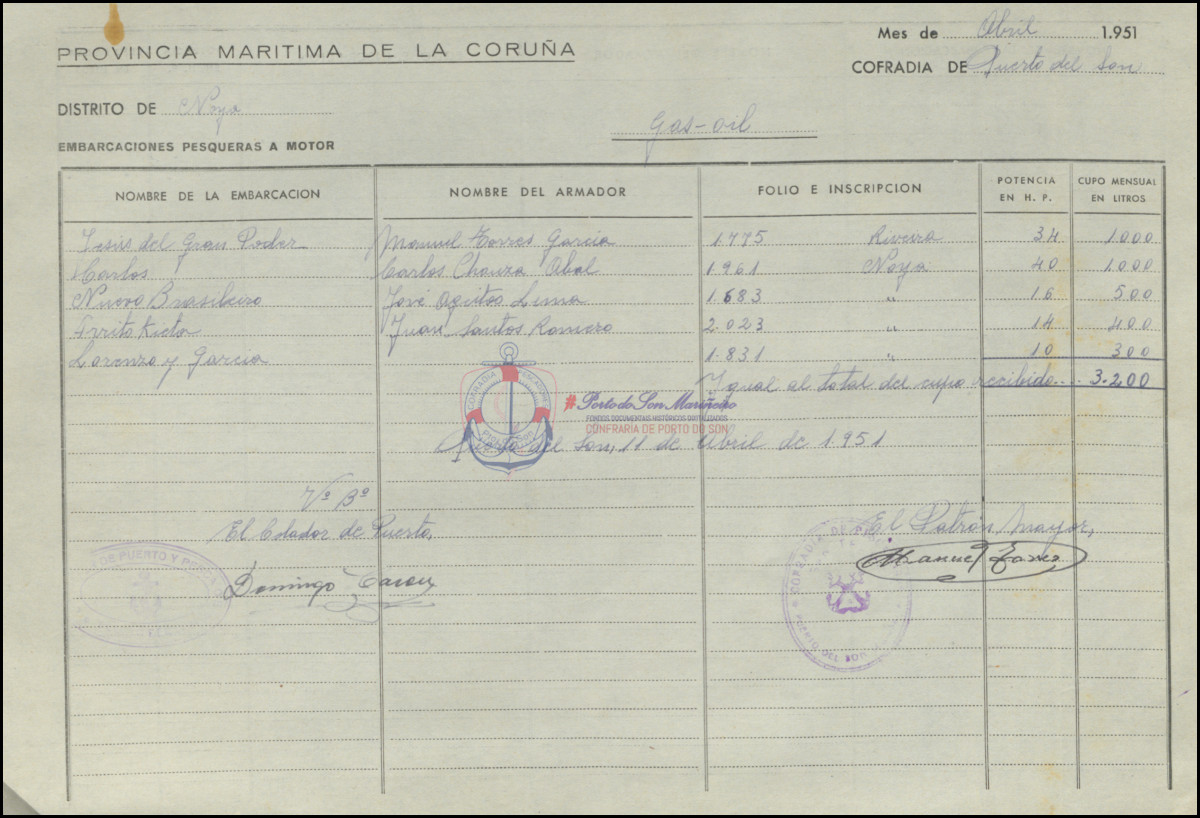 Mes de Abril 1.951
PROVINCIA MARITIMA DE LA CORUÑA
COFRADIA DE Puerto del Son
DISTRITO DE Noya
Gas-oil
EMBARCACIONES PESQUERAS A MOTOR
NOMBRE DE LA EMBARCACION NOMBRE DEL ARMADOR FOLIO E INSCRIPCION POTENCIA EN H. P. CUPO MENSUAL EN LITROS
Jesús del Gran Poder Manuel Torres García 1.775 Riveira 34 1.000
Carlos Carlos Chouza Abal 1.961 Noya 40 1.000
Nuevo Brasileiro José Ageitos Lima 1.683 " 16 500
Juan Santos Romero 2.023 " 14 400
Lorenzo y García 1.831 " 10 300
Igual al total del cupo recibido... 3.200
COFRADIA PESCADORES
PTO. DEL SON
#Porto do Son Mariñeiro
FONDOS DOCUMENTAIS HISTÓRICOS DIXITALIZADOS
CONFRARÍA DE PORTO DO SON
Puerto del Son, 11 de Abril de 1.951
Vº Bº
El Celador de Puerto,
El Patrón Mayor,
Domingo
Manuel Torres
DE PUERTO Y PESCA
COFRADIA DE
PUERTO DEL SON